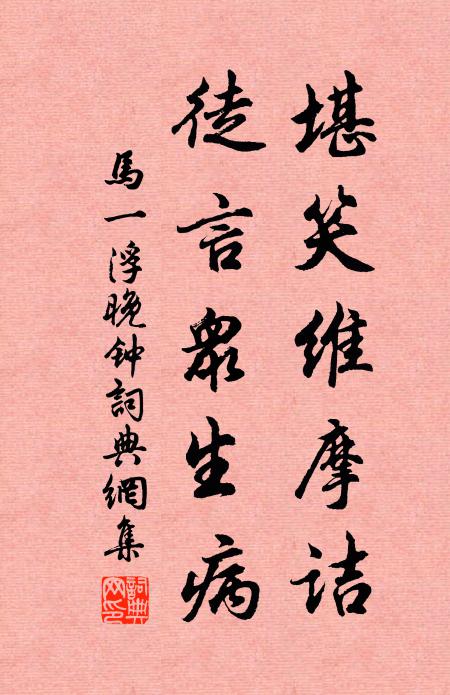 堪笑維摩詰
徒言眾生病
馬一浮晚钟詞典網集
詞典網印